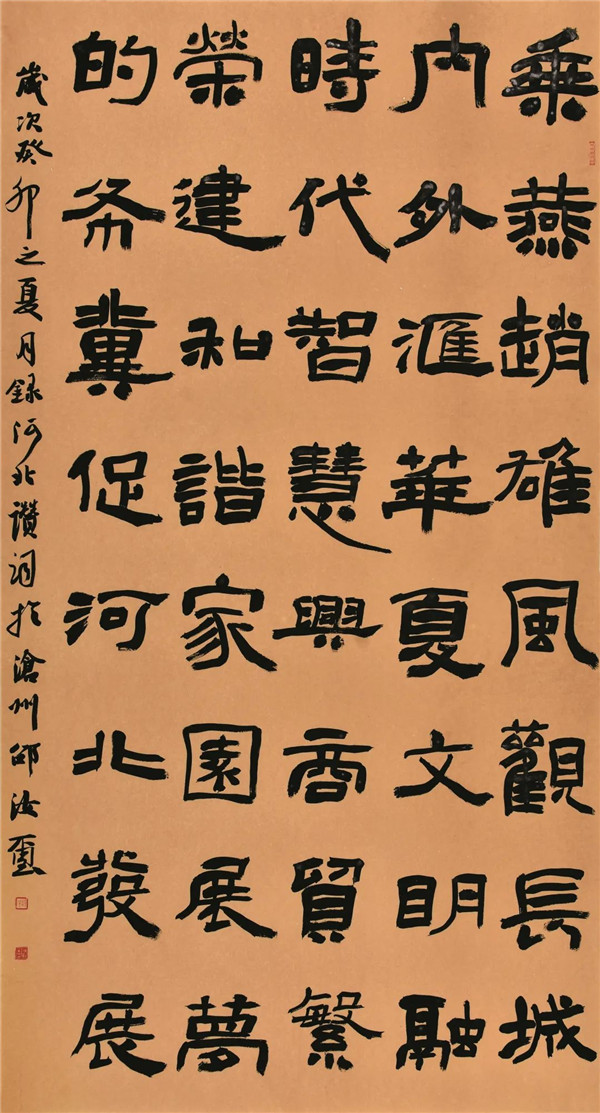 乘燕趙雄風觀長城
内外滙華夏文明融
時代智慧興商貿繁
榮建和諧家園展夢
的希冀促河北發展
歲次癸卯之夏月録河北讚詞於滄州邵汝璽